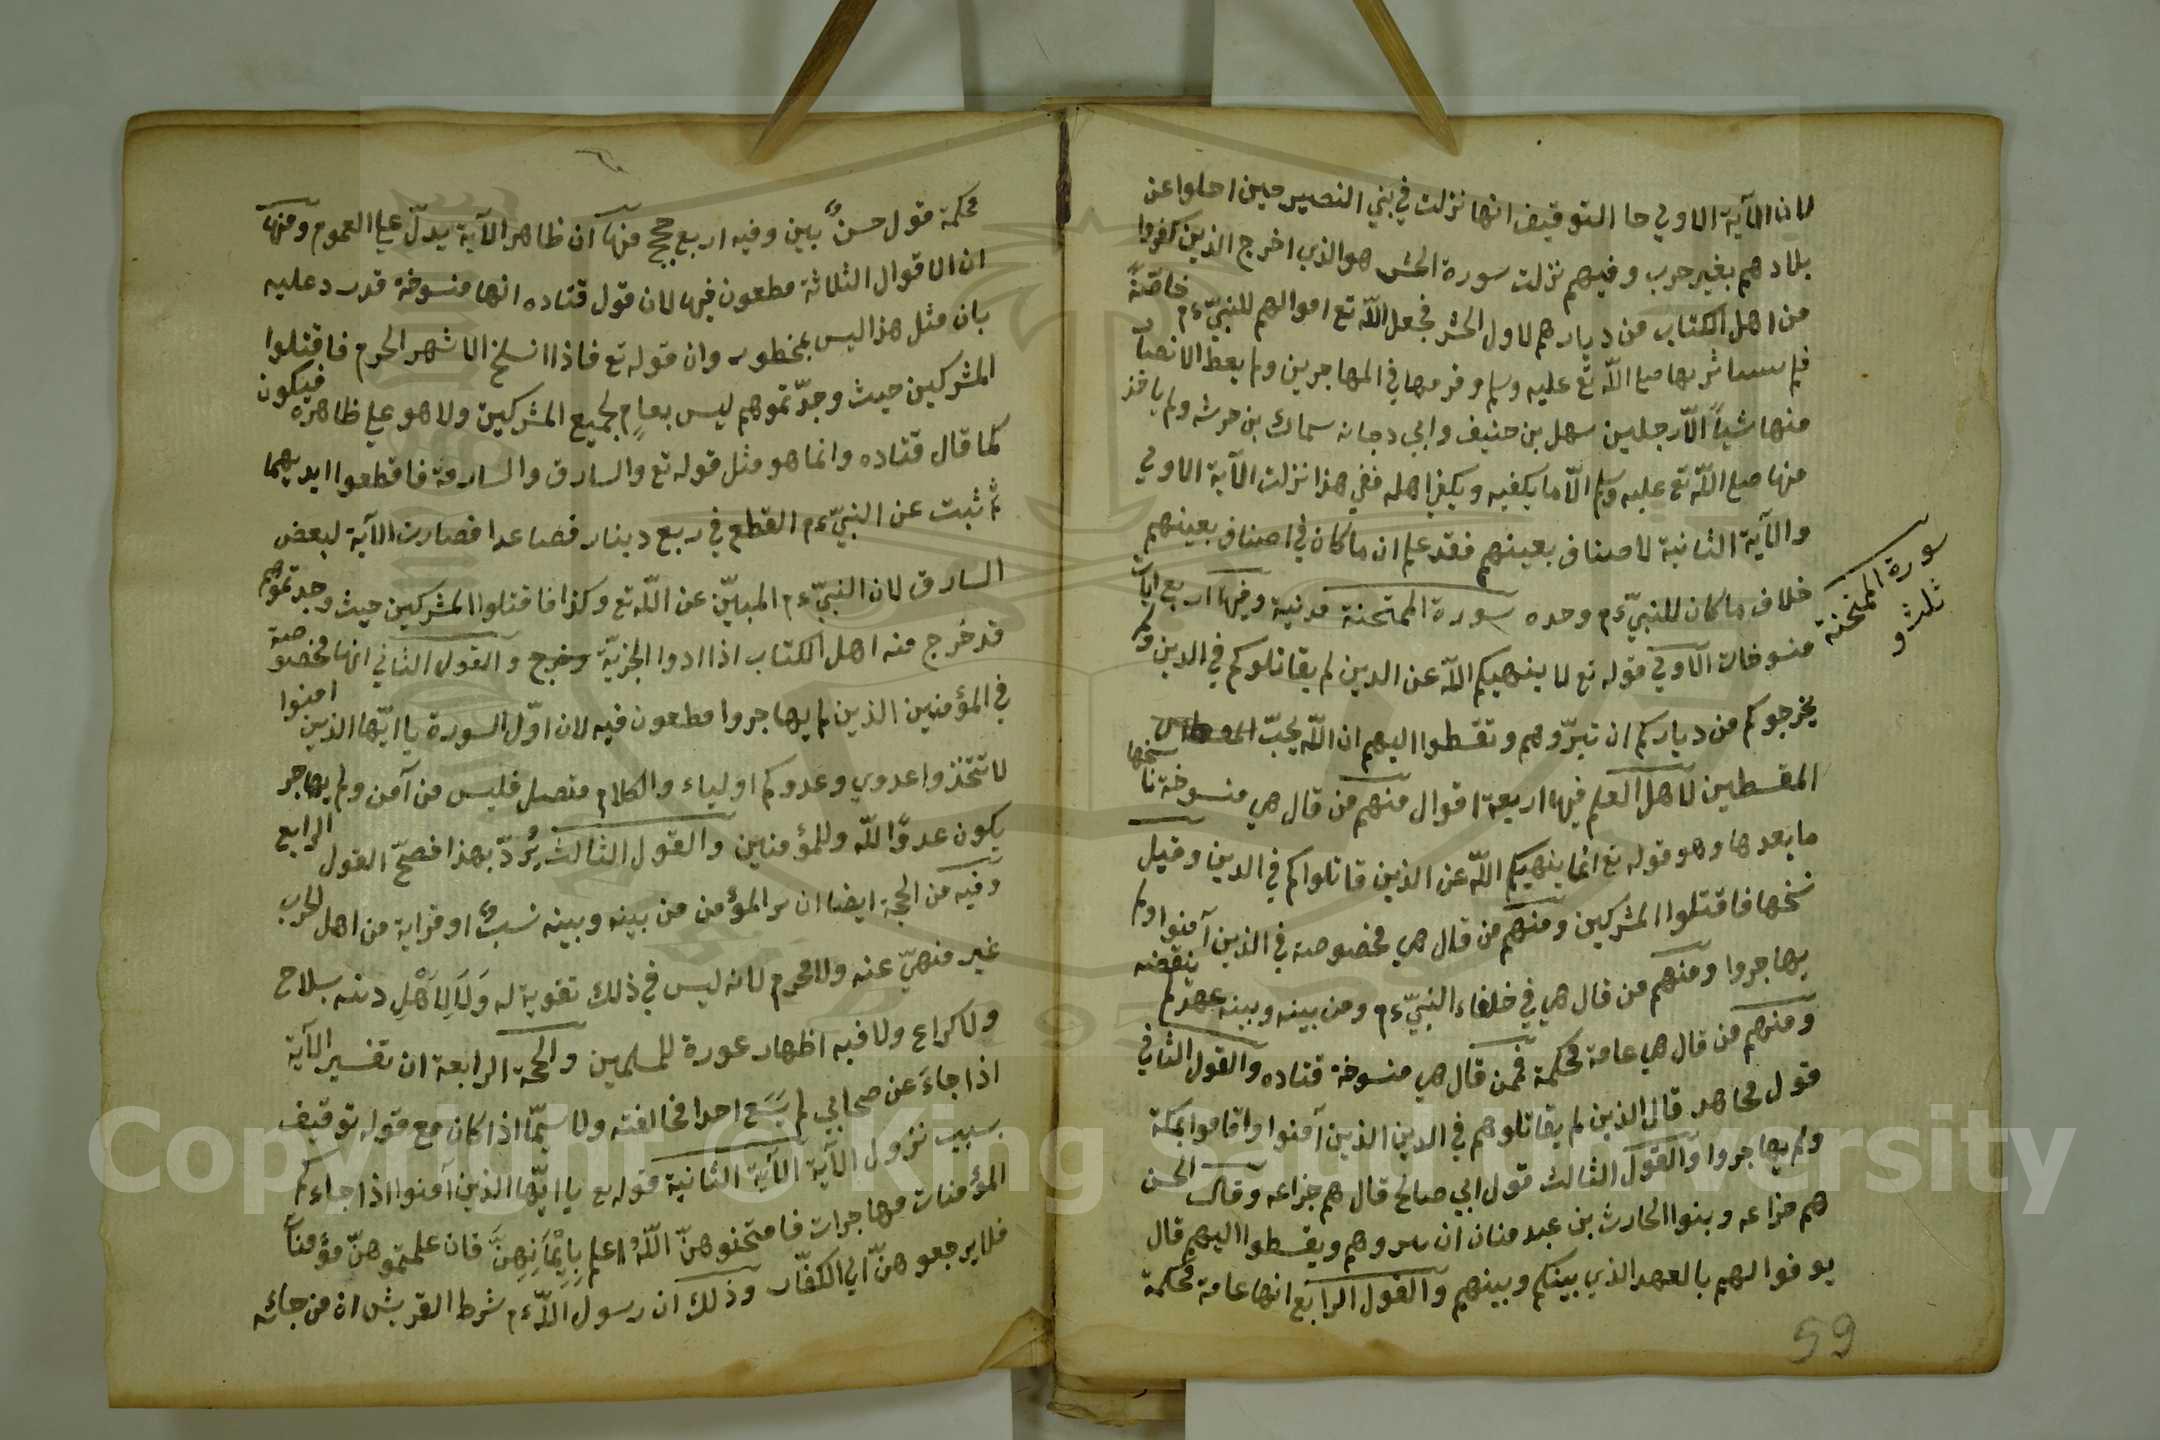 لان الآية الاولي جا التوقيف انها نزلت في بني النضير حين اجلوا عن
بلادهم بغير حرب وفيهم نزلت سورة الحشر هو الذي اخرج الذين كفروا
من اهل الكتاب من ديارهم لاول الحشر فجعل الله تع اموالهم للنبي ءم خاصّة
فلم يستاثر بها صلي الله تع عليه وسلم وفرقها في المهاجرين ولم يعط الانصار
منها شيأً الّا رجلين سهل بن حنيف وابي دجانه سماك بن خرشه ولم ياخذ
منها صلي الله تع عليه وسلم الّا ما يكفيه ويكفي اهله ففي هذا نزلت الآية الاولي
والآية الثانية لاصناف بعينهم فقد علم ان ما كان في اصناف بعينهم
خلاف ما كان للنبيّ ءم وحده سورة الممتحنة مدنية وفيها اربع آيات
سورة الممتحنة
ثلث و
منسوخات الآولي قوله تع لا ينهيكم الله عن الذين لم يقاتلوكم في الدين ولم
يخرجوكم من دياركم ان تبرّوهم وتقسطوا اليهم ان الله يحبّ
المقسطين لاهل العلم فيها اربعة اقوال منهم من قال هي منسوخة ناسخها
ما بعدها وهو قوله تع انما ينهيكم الله عن الذين قاتلواكم في الدين وقيل
نسخها فاقتلوا المشركين ومنهم من قال هي مخصوصة في الذين آمنوا ولم
يهاجروا ومنهم من قال هي في خلفاء النبيّ ءم ومن بينه وبينه عهد لم ينقضه
ومنهم من قال هي عامة محكمة فممن قال هي منسوخة قتاده والقول الثاني
قول مجاهد قال الذين لم يقاتلوهم في الدين الذين آمنوا واقاموا بمكة
ولم يهاجروا والقول الثالث قول ابي صالح قال هم خزاعه وقال الحسن
هم خزاعه وبنوا الحارث بن عبد مناف ان تبروهم وتقسطوا اليهم قال
يوفوا لهم بالعهد الذي بينكم وبينهم والقول الرابع انها عامة محكمة
59
محكمة قول حسنٌ بين وفيه اربع حجج منها ان ظاهر الآية يدلّ علي العموم ومنها
ان الاقوال الثلاثة مطعون فيها لان قول قتاده انها منسوخة قد رد عليه
بان مثل هذا ليس بمحظور وان قوله تع فاذا انسلخ الاشهر الحرم فاقتلوا
المشركين حيث وجدّتموهم ليس بعامٍ لجميع المشركين ولا هو علي ظاهره فيكون
كما قال قتاده وانما هو مثل قوله تع والسارق والسارقة فاقطعوا ايديهما
ثم ثبت عن النبيّ ءم القطع في ربع دينار فصاعدا فصارت الآية لبعض
السارق لان النبيّ ءم المبيّن عن الله تع وكذا فاقتلوا المشركين حيث وجدتموهم
قد خرج منه اهل الكتاب اذا ادوا الجزيّة وخرج والقول الثاني انها مخصوصة
في المؤمنين الذين لم يهاجروا مطعون فيه لان اوّل السورة يا ايّها الذين امنوا
لا تتخذوا عدوي وعدوكم اولياء والكلام متصل فليس من آمن ولم يهاجر
يكون عدوّا لله وللمؤمنين والقول الثالث يُردّ بهذا فصحّ القول الرابع
وفيه من الحجة ايضا ان بر المؤمن من بينه وبينه نسبٌ او قرابة من اهل الحرب
غير منهيّ عنه ولا محرم لانه ليس في ذلك تقوية له وَلَا لِاَهْلِ دينه بسلاح
ولا كراع ولا فيه اظهار عورة للمسلمين والحجة الرابعة ان تفسير الآية
اذا جاءَ عن صحابي لم يَسَع احدا مخالفته ولا سيّما اذا كان مع قوله توقيف
بسبب نزول الآية الآية الثانية قوله تع يا ايّها الذين آمنوا اذا جاءكم
المؤمنات مهاجرات فامتحنوهنّ اللهُ اعلم بِاِيْمَانِهِنَّ فان علمتموهنّ مؤمنات
فلا يرجعوهنّ الي الكفّار وذلك ان رسول الله ءم شرط القريش ان من جائه
Copyright © King Saud University